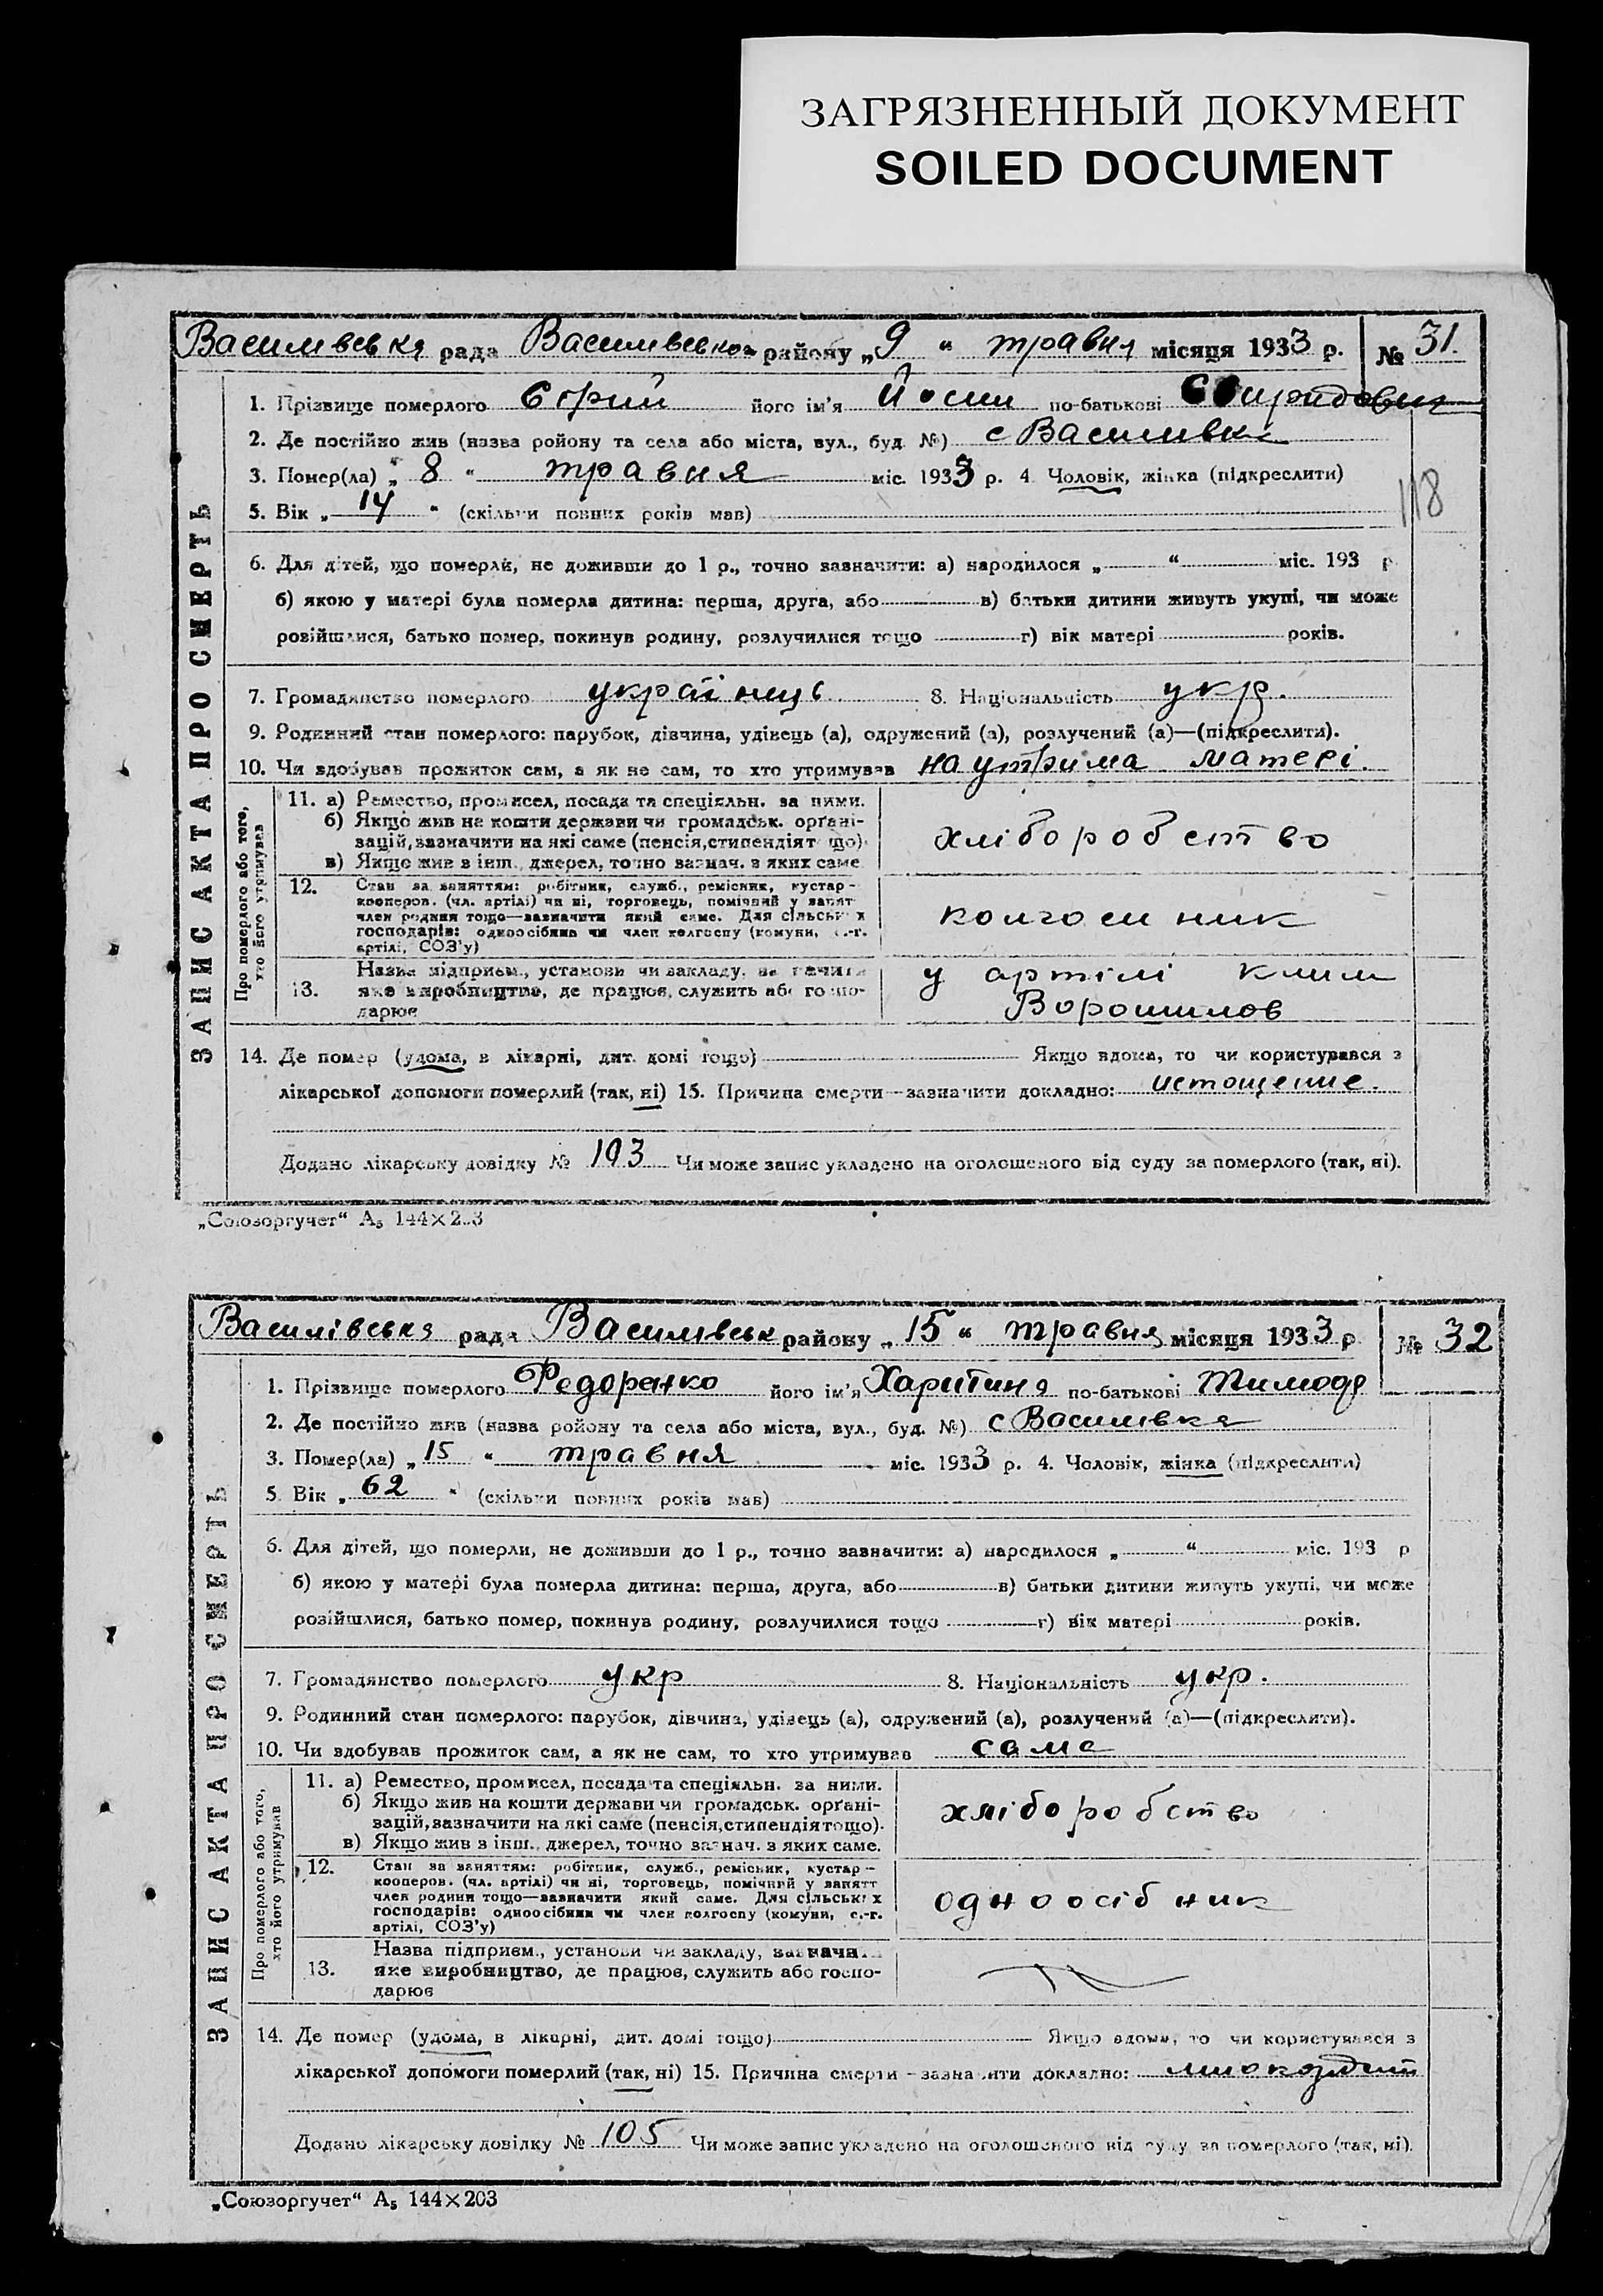 ЗАГРЯЗНЕННЫЙ ДОКУМЕНТ
SOILED DOCUMENT
Василівська рада Василівськ району „9“ травня місяця 1933 р. № 31.
1. Прізвище померлого його ім'я Йосип по-батькові Спиридович
2. Де постійно жив (назва ройону та села або міста, вул., буд. №) с Василівка
3. Помер(ла) „8“ травня міс. 1933 р. 4. Чоловік, жінка (підкреслити)
118
5. Вік „14“ (скільки повних років мав)
6. Для дітей, що померли, не доживши до 1 р., точно зазначити: а) народилося „ “ міс. 193 р.
б) якою у матері була померла дитина: перша, друга, або в) батьки дитини живуть укупі, чи може
розійшлися, батько помер, покинув родину, розлучилися тощо г) вік матері років.
7. Громадянство померлого українець 8. Національність укр.
9. Родинний стан померлого: парубок, дівчина, удівець (а), одружений (а), розлучений (а)—(підкреслити).
10. Чи здобував прожиток сам, а як не сам, то хто утримував на утрима матері.
ЗАПИС АКТА ПРО СМЕРТЬ
Про померлого або того,
хто його утримував
11. а) Ремество, промисел, посада та спеціяльн. за ними.
б) Якщо жив на кошти держави чи громадськ. орґані-
зацій, зазначити на які саме (пенсія, стипендія тощо).
в) Якщо жив з інш. джерел, точно зазнач. з яких саме.
хліборобство
12. Стан за заняттям: робітник, служб., ремісник, кустар-
кооперов. (чл. артілі) чи ні, торговець, помічний у занят
член родини тощо—зазначити який саме. Для сільськ х
господарів: одноосібник чи член колгоспу (комуни, с.-г.
артілі, СОЗ'у)
колгосиник
13. Назва підприєм., установи чи закладу, зазначити
яке виробництво, де працює, служить або госпо-
дарює
у артілі Клим
Ворошилов
14. Де помер (удома, в лікарні, дит. домі тощо) Якщо вдома, то чи користувався з
лікарської допомоги померлий (так, ні) 15. Причина смерти—зазначити докладно: истощение.
Додано лікарську довідку № 103 Чи може запис укладено на оголошеного від суду за померлого (так, ні).
„Союзоргучет“ А₅ 144×203
Василівська рада Василівськ району „15“ травня місяця 1933 р № 32
1. Прізвище померлого Федоренко його ім'я Харитина по-батькові Тимофе
2. Де постійно жив (назва ройону та села або міста, вул., буд. №) с Василівка
3. Помер(ла) „15“ травня міс. 1933 р. 4. Чоловік, жінка (підкреслити)
5. Вік „62“ (скільки повних років мав)
6. Для дітей, що померли, не доживши до 1 р., точно зазначити: а) народилося „ “ міс. 193 р
б) якою у матері була померла дитина: перша, друга, або в) батьки дитини живуть укупі, чи може
розійшлися, батько помер, покинув родину, розлучилися тощо г) вік матері років.
7. Громадянство померлого укр 8. Національність укр.
9. Родинний стан померлого: парубок, дівчина, удівець (а), одружений (а), розлучений (а)—(підкреслити).
10. Чи здобував прожиток сам, а як не сам, то хто утримував сама
ЗАПИС АКТА ПРО СМЕРТЬ
Про померлого або того,
хто його утримував
11. а) Ремество, промисел, посада та спеціяльн. за ними.
б) Якщо жив на кошти держави чи громадськ. орґані-
зацій, вазначити на які саме (пенсія, стипендія тощо).
в) Якщо жив з інш. джерел, точно зазнач. з яких саме.
хліборобство
12. Стан за заняттям: робітник, служб., ремісник, кустар—
кооперов. (чл. артілі) чи ні, торговець, помічний у занятт
член родини тощо—зазначити який саме. Для сільськ х
господарів: одноосібник чи член колгоспу (комуни, с.-г.
артілі, СОЗ'у)
одноосібник
13. Назва підприєм., установи чи закладу, зазначи
яке виробництво, де працює, служить або госпо-
дарює
14. Де помер (удома, в лікарні, дит. домі тощо) Якщо вдома, то чи користувався з
лікарської допомоги померлий (так, ні) 15. Причина смерти—зазначити докладно: миокардит
Додано лікарську довідку № 105 Чи може запис укладено на оголошеного від суду за померлого (так, ні).
„Союзоргучет“ А₅ 144×203